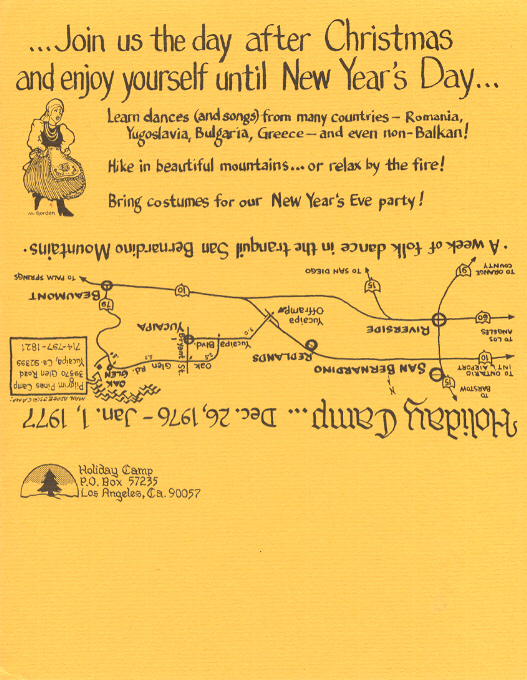 ...Join us the day after Christmas
and enjoy yourself until New Year's Day...
Learn dances (and songs) from many countries – Romania,
Yugoslavia, Bulgaria, Greece – and even non-Balkan!
Hike in beautiful mountains... or relax by the fire!
Bring costumes for our New Year's Eve party!
M. Gordon
Holiday Camp... Dec. 26, 1976 - Jan. 1, 1977
TO BARSTOW
15
TO ONTARIO
INT. AIRPORT
10
SAN BERNARDINO
N
REDLANDS
TO LOS
ANGELES
60
RIVERSIDE
TO ORANGE
COUNTY
91
15
TO SAN DIEGO
Yucaipa
Offramp
Yucaipa Blvd.
YUCAIPA
Bryant St.
Oak
Glen Rd.
OAK
GLEN
79
BEAUMONT
10
TO PALM SPRINGS
Pilgrim Pines Camp
39570 Glen Road
Yucaipa, Ca. 92399
714-797-1821
· A week of folk dance in the tranquil San Bernardino Mountains ·
Holiday Camp
P.O. Box 57235
Los Angeles, Ca. 90057